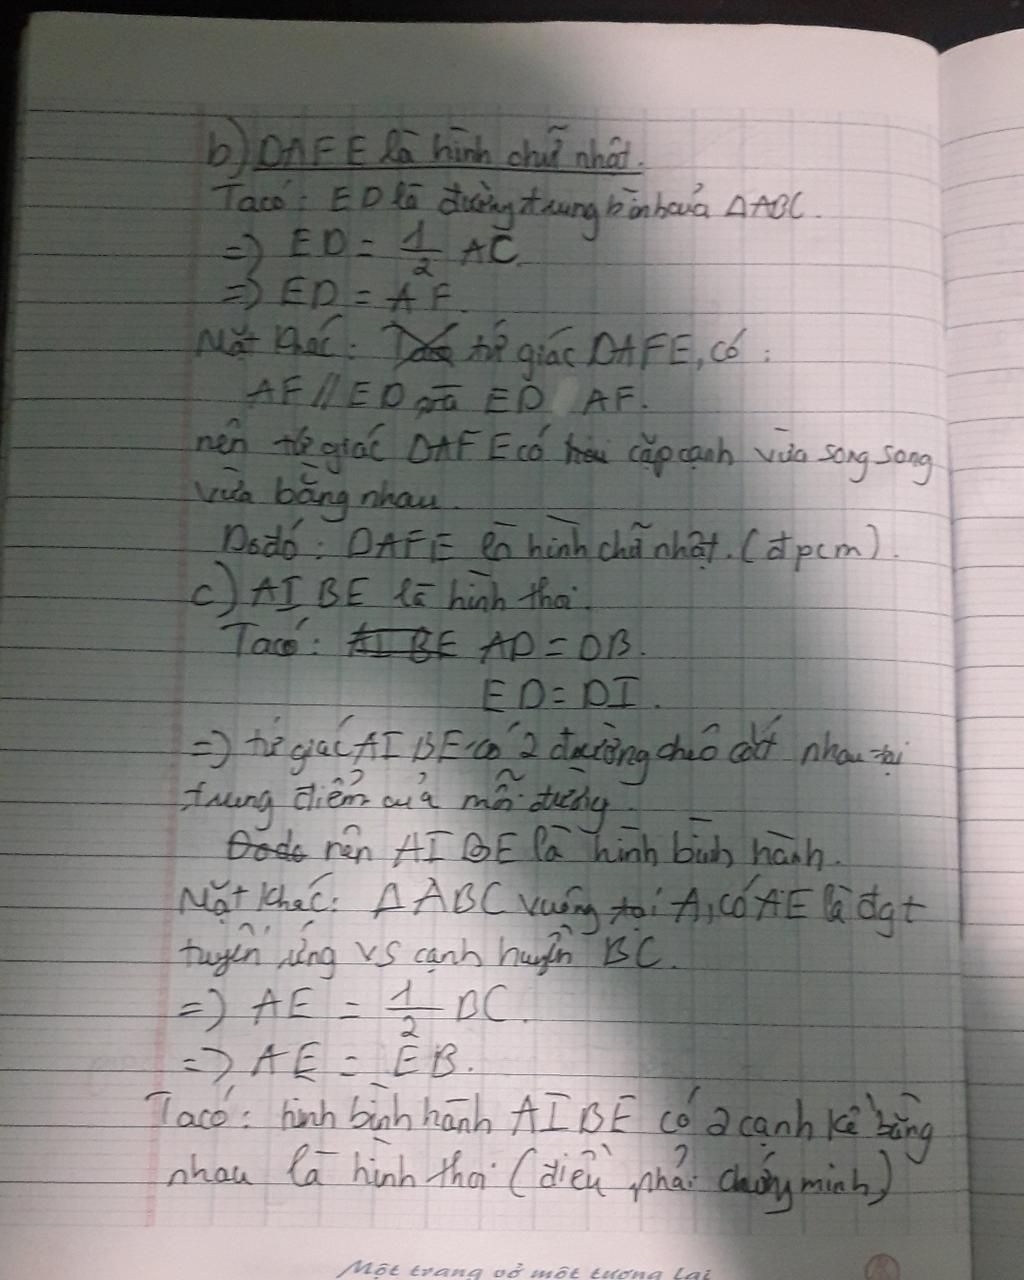 b) DAFE là hình chữ nhật.
Ta có: ED là đường trung bình của ΔABC.
=) ED = 1/2 AC.
=) ED = AF.
Mặt khác: tứ giác DAFE, có :
AF // ED mà ED AF.
nên tứ giác DAFE có hai cặp cạnh vừa song song
vừa bằng nhau.
Do đó: DAFE là hình chữ nhật. (đpcm).
c) AIBE là hình thoi.
Ta có: AIBE AD = DB.
ED = DI.
=) tứ giác AIBE có 2 đường chéo cắt nhau tại
trung điểm của mỗi đường.
nên AIBE là hình bình hành.
Mặt khác: ΔABC vuông tại A, có AE là đgt
tuyến ứng vs cạnh huyền BC.
=) AE = 1/2 BC.
=) AE = EB.
Ta có: hình bình hành AIBE có 2 cạnh kề bằng
nhau là hình thoi (điều phải chứng minh)
Một trang vở một tương lai